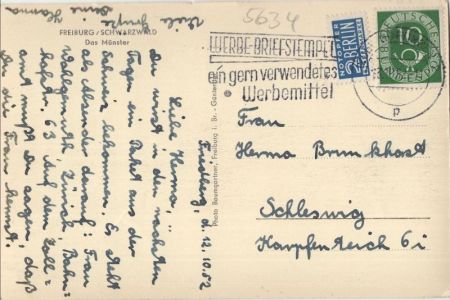 5634
FREIBURG / SCHWARZWALD
Das Münster
Viele Grüße
Deine Hanna
Friedberg, d. 12.10.52
Liebe Herma,
Du wirst in den nächsten
Tagen ein Paket aus der
Schweiz bekommen. Es steht
als Absender darauf: Frau
Zürich, Bahn=
63. Auf dem Zoll=
amt mußt Du sagen, daß
Du die Frau kennst.
Photo Baumgartner, Freiburg i. Br.
WERBE-BRIEFSTEMPEL
ein gern verwendetes
Werbemittel
NOTOPFER
2 BERLIN
STEUERMARKE
DEUTSCHE
BUNDESPOST
10
p
Frau
Herma Brunkhorst
Schleswig
Karpfenteich 6 i